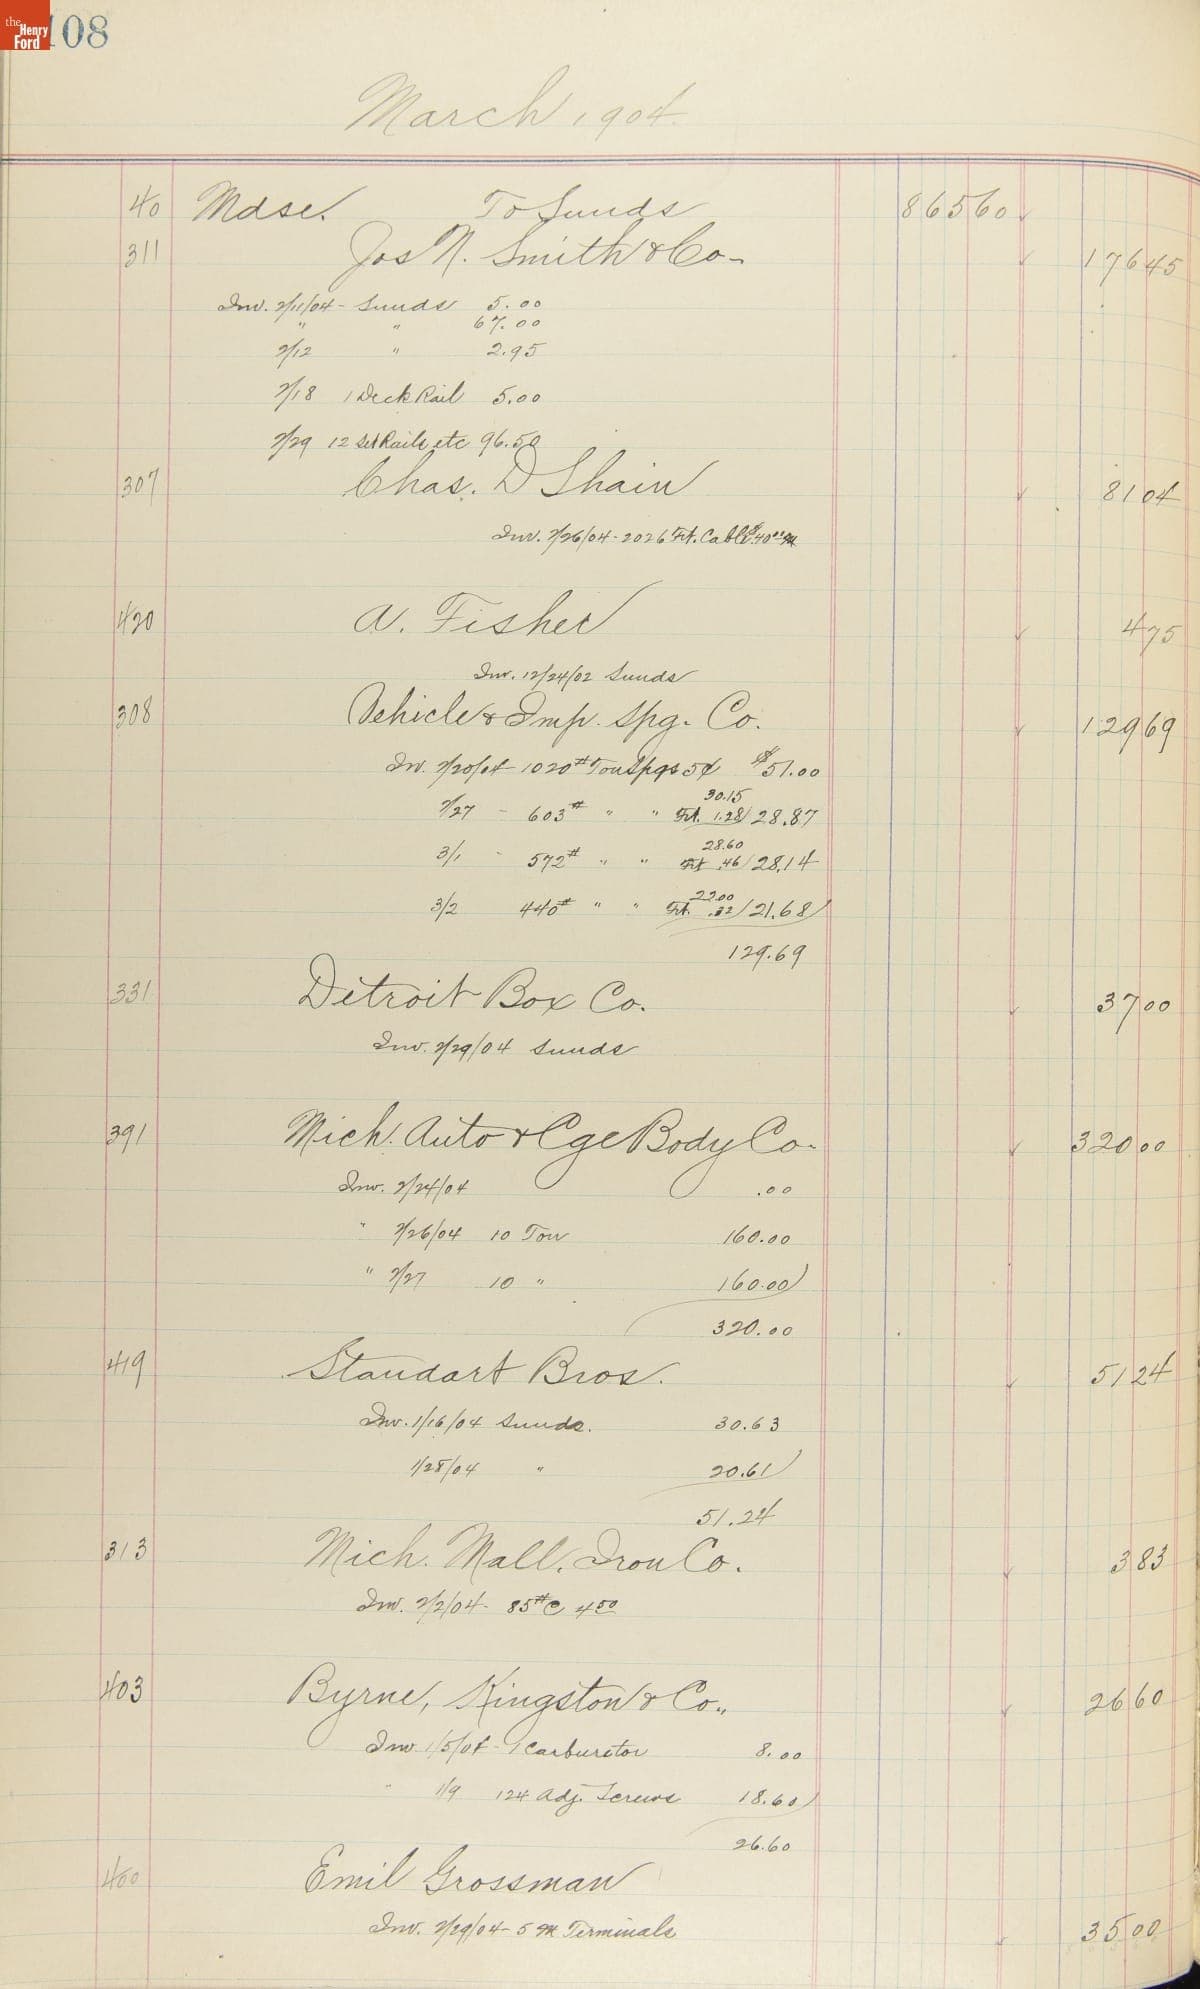 the Henry Ford
108
March 1904.
40 Mdse. To Sunds 865 60
311 Jos N. Smith & Co- 176 45
Inv. 2/11/04 - Sunds 5.00
" " 67.00
2/12 " 2.95
2/18 1 Deck Rail 5.00
2/29 12 Set Rails etc 96.50
307 Chas. D Shain 81 04
Inv. 2/26/04 - 2026 Ft. Cable $40.00 M
420 A. Fisher 4 75
Inv. 12/24/02 Sunds
308 Vehicle & Imp. Spg. Co. 129 69
Inv. 2/20/04 1020# Ton Spgs 5¢ $51.00
30.15
2/27 - 603# " " Frt. 1.28/ 28.87
28.60
3/1 - 572# " " Frt .46/ 28.14
22.00
3/2 440# " " Frt. .32/ 21.68
129.69
331 Detroit Box Co. 37 00
Inv. 2/29/04 Sunds
391 Mich. Auto & Cge Body Co- 320 00
Inv. 2/24/04 .00
" 2/26/04 10 Ton 160.00
" 2/27 10 " 160.00
320.00
419 Standart Bros. 51 24
Inv. 1/16/04 Sunds. 30.63
1/28/04 " 20.61
51.24
313 Mich. Mall. Iron Co. 3 83
Inv. 2/2/04 - 85# @ 4 50
403 Byrne, Kingston & Co., 26 60
Inv 1/5/04 - 1 Carburetor 8.00
" 1/9 124 Adj. Screws 18.60
26.60
400 Emil Grossman
Inv. 2/29/04 - 5 M Terminals 35 00